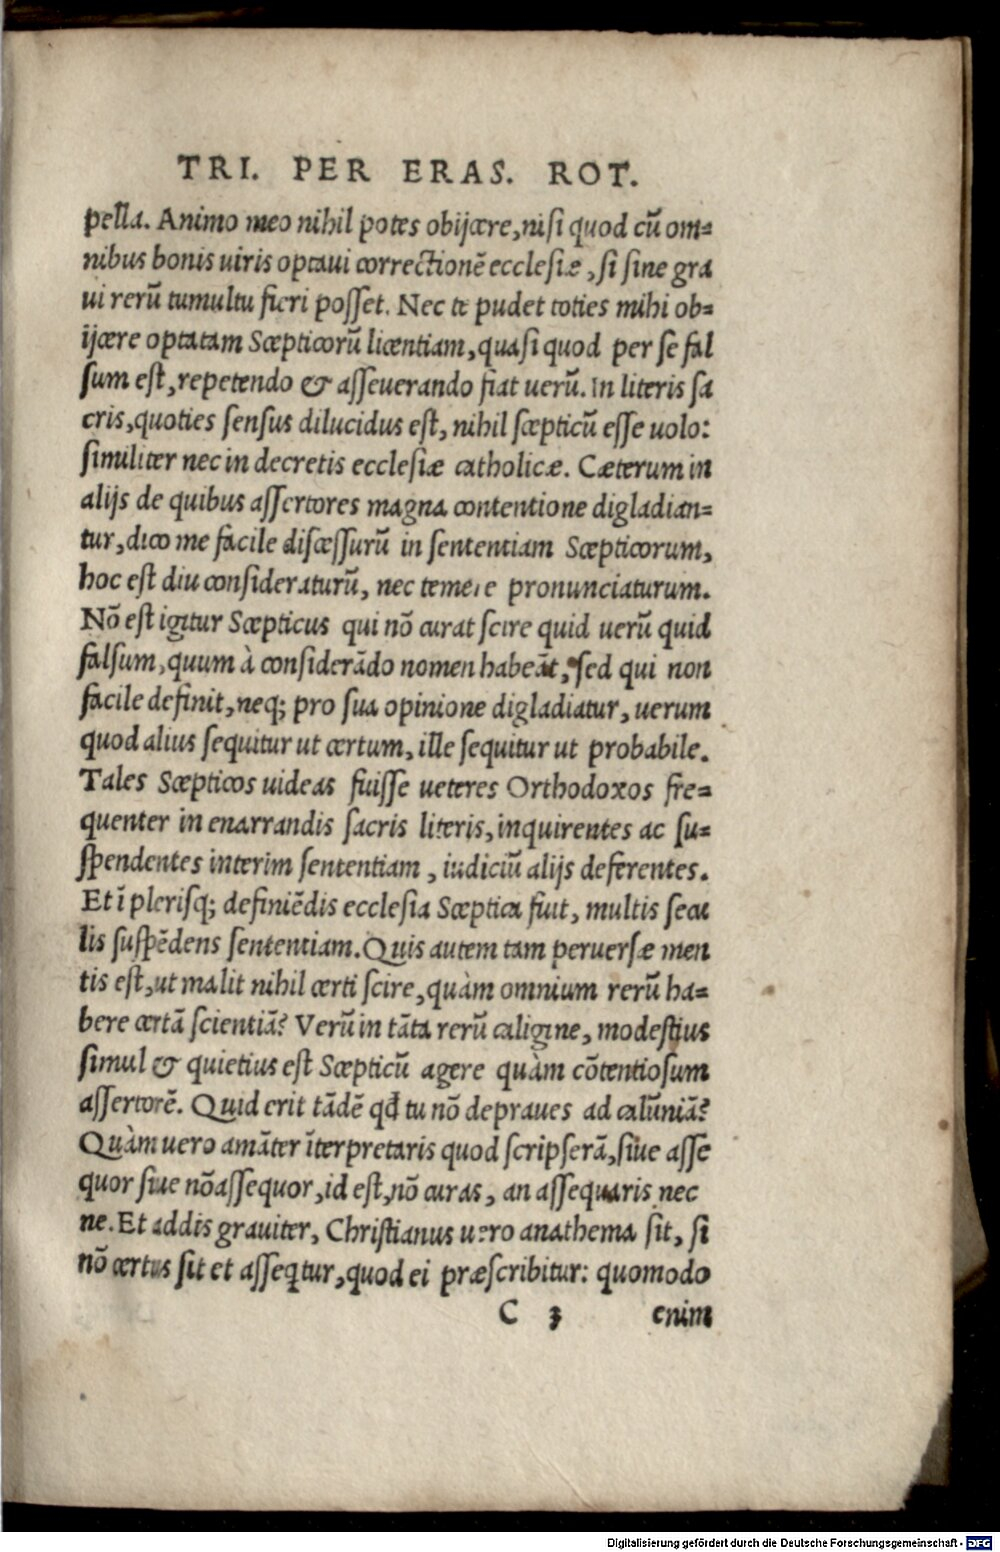 TRI. PER ERAS. ROT.
pella. Animo meo nihil potes obijcere, nisi quod cū om=
nibus bonis uiris optaui correctionē ecclesiæ, si sine gra
ui rerū tumultu fieri posset. Nec te pudet toties mihi ob=
ijcere optatam Scepticorū licentiam, quasi quod per se fal
sum est, repetendo & asseuerando fiat uerū. In literis sa
cris, quoties sensus dilucidus est, nihil scepticū esse uolo:
similiter nec in decretis ecclesiæ catholicæ. Cæterum in
alijs de quibus assertores magna contentione digladian=
tur, dico me facile discessurū in sententiam Scepticorum,
hoc est diu consideraturū, nec temere pronunciaturum.
Nō est igitur Scepticus qui nō curat scire quid uerū quid
falsum, quum à considerādo nomen habeāt, sed qui non
facile definit, neq; pro sua opinione digladiatur, uerum
quod alius sequitur ut certum, ille sequitur ut probabile.
Tales Scepticos uideas fuisse ueteres Orthodoxos fre=
quenter in enarrandis sacris literis, inquirentes ac su=
spendentes interim sententiam, iudiciū alijs deferentes.
Et ī plerisq; definiēdis ecclesia Sceptica fuit, multis secu
lis suspēdens sententiam. Quis autem tam peruersæ men
tis est, ut malit nihil certi scire, quàm omnium rerū ha=
bere certā scientiā? Verū in tāta rerū caligine, modestius
simul & quietius est Scepticū agere quàm cōtentiosum
assertorē. Quid erit tādē qđ tu nō depraues ad calūniā?
Quàm uero amāter īterpretaris quod scripserā, siue asse
quor siue nō assequor, id est, nō curas, an assequaris nec
ne. Et addis grauiter, Christianus uero anathema sit, si
nō certus sit et asseqtur, quod ei præscribitur: quomodo
C 3 enim
Digitalisierung gefördert durch die Deutsche Forschungsgemeinschaft - DFG